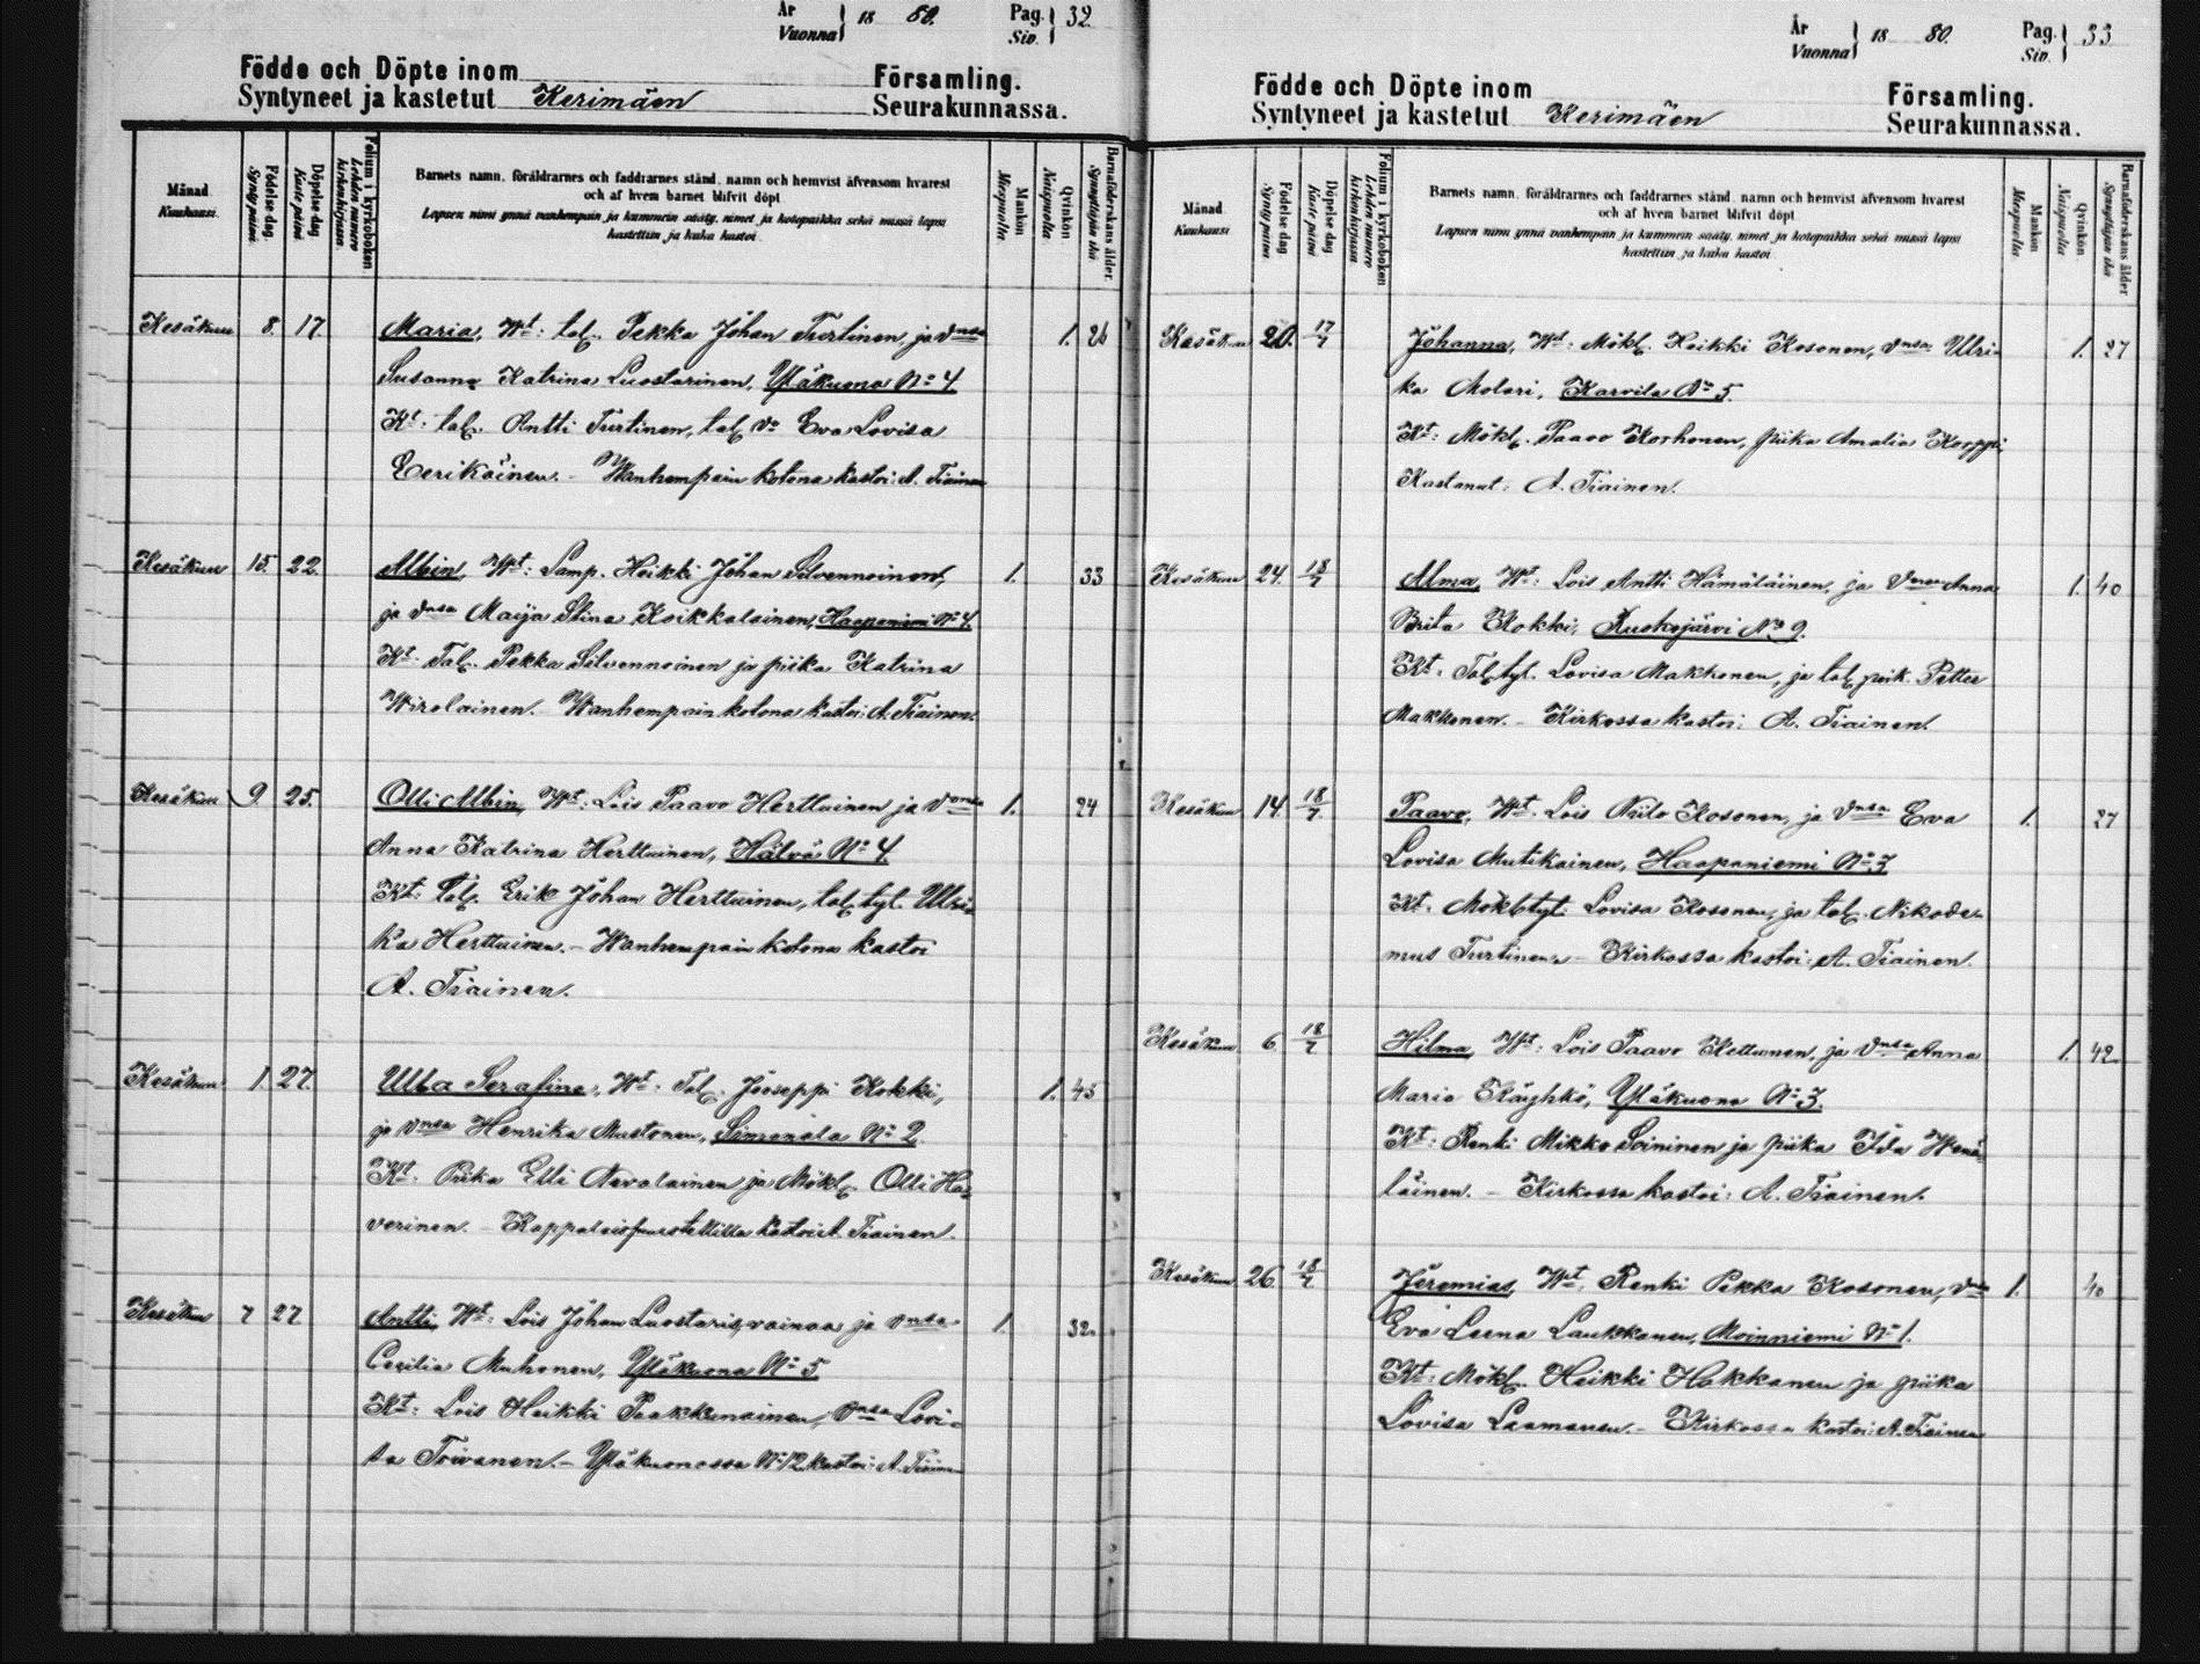 År Vuonna } 18 80. Pag. Siv. } 32.
Födde och Döpte inom Församling.
Syntyneet ja kastetut Kerimäen Seurakunnassa.
Månad Kuukausi.
Födelse dag. Synty päivä
Döpelse dag Kaste päivä
Folium i kyrkoboken Lehden numero kirkonkirjassa
Barnets namn, föräldrarnes och faddrarnes stånd, namn och hemvist äfvensom hvarest
och af hvem barnet blifvit döpt
Lapsen nimi ynnä vanhempain ja kummein sääty, nimet ja kotopaikka sekä missä lapsi
kastettiin ja kuka kastoi.
Mankön Miespuolta
Qvinkön Naispuolta
Barnaföderskans ålder Synnyttäjän ikä
Kesäkuu 8. 17. Maria, Wt: tal. Pekka Johan Turtinen, ja vmsa 1. 26
Susanna Katrina Luostarinen, Yläkuona No 4.
Kt: tal. Antti Turtinen, tal. vo Eva Lovisa
Eerikäinen. - Wanhempain kotona kastoi: A. Tiainen
Kesäkuu 15. 22. Albin, Wt: Lamp. Heikki Johan Silvennoinen, 1. 33
ja vmsa Maija Stina Koikkalainen, Haapaniemi No 4.
Kt: Tal. Pekka Silvennoinen ja piika Katrina
Wirolainen. Wanhempain kotona kastoi: A. Tiainen.
Kesäkuu 9. 25. Olli Albin, Wt: Lois Paavo Herttuinen ja vmsa 1. 24
Anna Katrina Herttuinen, Hälvä No 4.
Kt: tal. Erik Johan Herttuinen, tal. tyt. Ulri-
ka Herttuinen. - Wanhempain kotona kastoi
A. Tiainen.
Kesäkuu 1. 27. Ulla Serafina, Wt: Tal. Jooseppi Kokki, 1. 45
ja vmsa Henrika Mustonen, Simanala No 2.
Kt: Piika Elli Nevalainen ja Mökl. Olli Ha-
verinen. - kastoi A. Tiainen.
Kesäkuu 7 27 Antti, Wt: Lois Johan Luostaris, vainaa ja vmsa 1. 32.
Cecilia Muhonen, Yläkuona No 5
Kt: Lois Heikki Paakkunainen, vmsa Lovi-
sa Toivanen. - Yläkuonassa No 12 kastoi: A. Tiainen
År Vuonna } 18 80. Pag. Siv. } 33
Födde och Döpte inom Församling.
Syntyneet ja kastetut Kerimäen Seurakunnassa.
Månad Kuukausi
Födelse dag Synty päivä
Döpelse dag Kaste päivä
Folium i kyrkoboken Lehden numero kirkonkirjassa
Barnets namn, föräldrarnes och faddrarnes stånd, namn och hemvist äfvensom hvarest
och af hvem barnet blifvit döpt
Lapsen nimi ynnä vanhempain ja kummein sääty, nimet ja kotopaikka sekä missä lapsi
kastettiin ja kuka kastoi
Mankön Miespuolta
Qvinkön Naispuolta
Barnaföderskans ålder Synnyttäjän ikä
Kesäkuu 20. 17/7 Johanna, Wt: Mökl. Heikki Kosonen, vmsa Ulri- 1. 27
ka Molari, Karvila No 5.
Kt: Mökl. Paavo Korhonen, piika Amalia Korppi,
Kastanut: A. Tiainen.
Kesäkuu 24. 18/7 Alma, Wt: Lois Antti Hämäläinen, ja vmsa Anna 1. 40
Brita Kokki, Ruokojärvi No 9.
Kt: Tal. tyt. Lovisa Makkonen, ja tal. poik. Petter
Makkonen. - Kirkossa kastoi: A. Tiainen.
Kesäkuu 14. 18/7 Paavo, Wt: Lois Niilo Kosonen, ja vmsa Eva 1. 27
Lovisa Mutikainen, Haapaniemi No 7
Kt: Mökl. tyt. Lovisa Kosonen, ja tal. Nikode-
mus Turtinen. - Kirkossa kastoi: A. Tiainen.
Kesäkuu 6. 18/7 Hilma, Wt: Lois Paavo Kettunen, ja vmsa Anna 1. 42.
Maria Käyhkö, Yläkuona No 3.
Kt: Renki Mikko Soininen ja piika Ida Wenä-
läinen. - Kirkossa kastoi: A. Tiainen.
Kesäkuu 26. 18/7 Jeremias, Wt: Renki Pekka Kosonen, vmsa 1. 40
Eva Leena Laukkanen, Moinniemi No 1.
Kt: Mökl. Heikki Hakkanen ja piika
Lovisa Laamanen. - Kirkossa kastoi: A. Tiainen